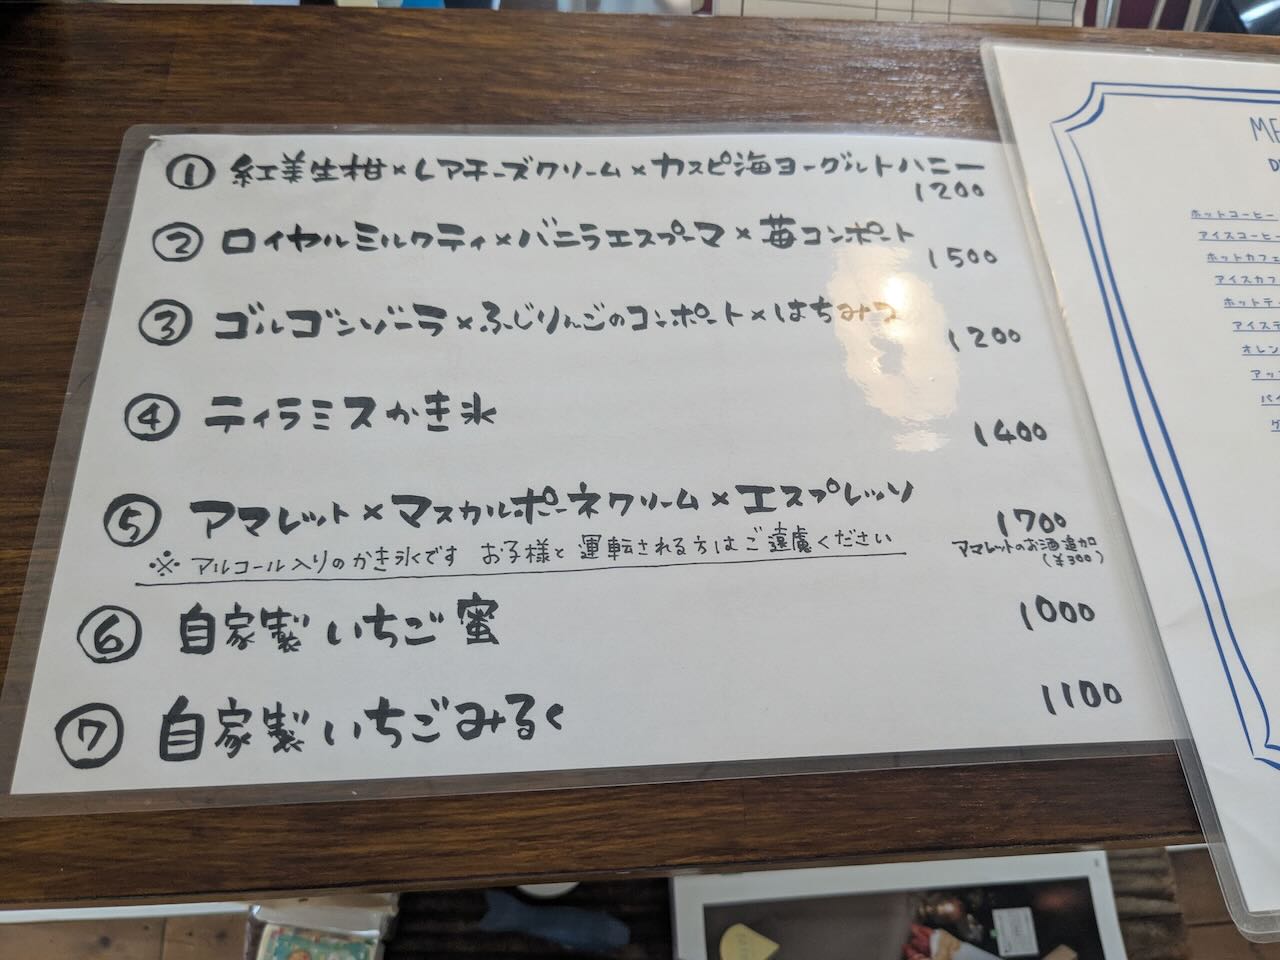 ① 紅美生柑×レアチーズクリーム×カスピ海ヨーグルトハニー
1200
② ロイヤルミルクティ×バニラエスプーマ×苺コンポート
1500
③ ゴルゴンゾーラ×ふじりんごのコンポート×はちみつ
1200
④ ティラミスかき氷
1400
⑤ アマレット×マスカルポーネクリーム×エスプレッソ
1700
※ アルコール入りのかき氷です お子様と運転される方はご遠慮ください
アマレットのお酒追加
(¥300)
⑥ 自家製いちご蜜
1000
⑦ 自家製いちごみるく
1100
ME
D
ホットコーヒー
アイスコーヒー
ホットカフェ
アイスカフ
ホットティ
アイステ
オレン
アッ
パイ
グ